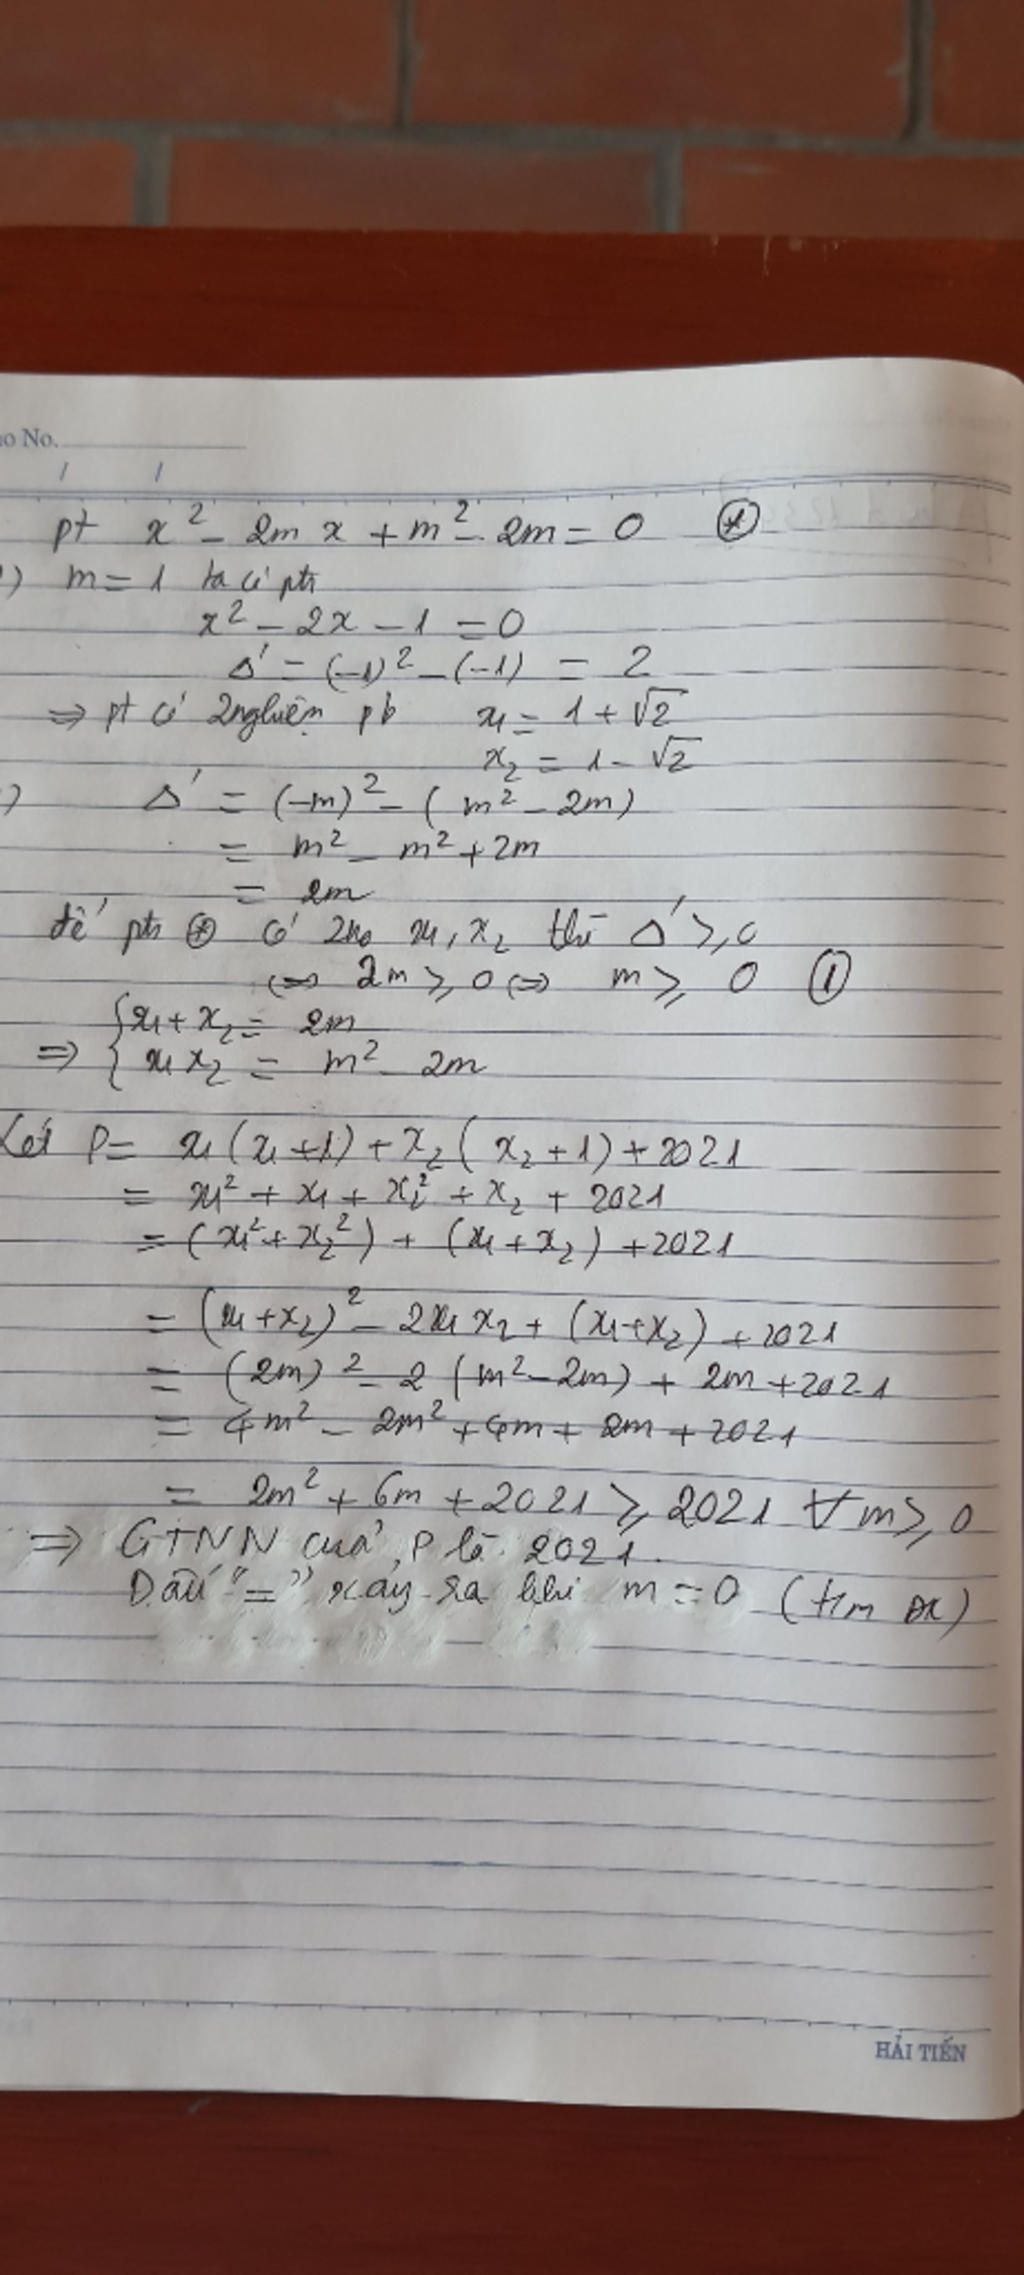 No.
pt x² - 2mx + m² - 2m = 0 (*)
) m = 1 ta có ptr
x² - 2x - 1 = 0
Δ' = (-1)² - (-1) = 2
=> pt có 2 nghiệm pb x₁ = 1 + √2
x₂ = 1 - √2
) Δ' = (-m)² - (m² - 2m)
= m² - m² + 2m
= 2m
để ptr (*) có 2 no x₁, x₂ thì Δ' ≥ 0
<=> 2m ≥ 0 <=> m ≥ 0 (1)
=> { x₁ + x₂ = 2m
x₁x₂ = m² - 2m
Xét P = x₁(x₁+1) + x₂(x₂+1) + 2021
= x₁² + x₁ + x₂² + x₂ + 2021
= (x₁² + x₂²) + (x₁ + x₂) + 2021
= (x₁+x₂)² - 2x₁x₂ + (x₁+x₂) + 2021
= (2m)² - 2(m² - 2m) + 2m + 2021
= 4m² - 2m² + 4m + 2m + 2021
= 2m² + 6m + 2021 ≥ 2021 ∀ m ≥ 0
=> GTNN của P là 2021.
Dấu "=" xảy ra khi m = 0 (t/m ĐK)
HẢI TIẾN